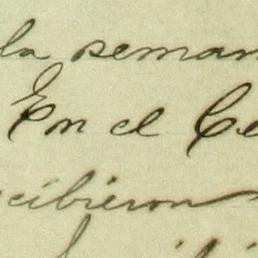 la seman
En el Ce
cibieron